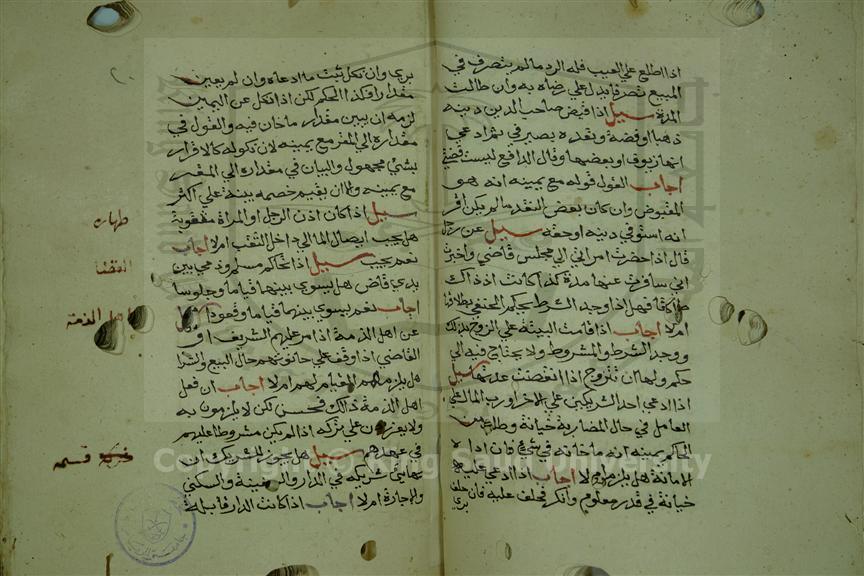 اذا اطلع علي العيب فله الرد ما لم يتصرف في
المبيع تصرفا يدل علي رضاه به وان طالت
المدة سيل اذا قبض صاحب الدين دينه
ذهبا او فضة وبعده يصير في يده ادعي
انها زيوف او بعضها وقال الدافع ليست فضتي
اجاب القول قوله مع يمينه انه هو
المقبوض وان كان بعض النقد ما لم يكن اقر
انه استوفي دينه او حقه سيل عن رجل
قال اذا حضرت امراتي الي مجلس قاضي واخبرت
اني سافرت عنها مدة كذا كانت اذ ذاك
طالقا فهل اذا وجد الشرط يحكم الحنفي بطلاقها
ام لا اجاب اذا قامت البينة علي الزوج بذلك
ووجد الشرط والمشروط ولا يحتاج فيه الي
حكم ولها ان تتزوج اذا انقضت عدتها سيل
اذا ادعي احد الشريكين علي الاخر او رب المال علي
العامل في حال المضاربة خيانة وطلب من
الحاكم يمينه انه ما خانه في شيء وانه ادا
الامانة هل يلزمه ام لا اجاب اذا ادعي عليه
خيانة في قدر معلوم وانكر فحلف عليه فان حلف
بري
بري وان نكل ثبت ما ادعاه وان لم يعين
مقدارا فكذا الحكم لكن اذا نكل عن اليمين
لزمه ان يبين مقدار ما خان فيه والقول في
مقداره الي المقر مع يمينه لان نكوله كالاقرار
بشي مجهول والبيان في مقداره الي المقر
مع يمينه الا ان يقيم خصمه بينة علي اكثر
سيل اذا كان اذن الرجل او المراة مثقوبة
هل يجب ايصال الما الي داخل الثقب ام لا اجاب
نعم يجب سيل اذا تحاكم مسلم وذمي بين
يدي قاض هل يسوي بينهما قياما وجلوسا
اجاب نعم يسوي بينهما قياما وقعودا سيل
عن اهل الذمة اذا مر عليهم الشريف او
القاضي اذا وقف علي حانوتهم حال البيع والشرا
هل يلزمهم القيام لهم ام لا اجاب ان فعل
اهل الذمة ذالك فحسن لكن لا يلزمون به
ولا يعزرون علي تركه اذا لم يكن مشروطا عليهم
في عهدهم سيل هل يجوز للشريك ان
يهائي شريكه في الدار والسفينة والسكني
والاجارة ام لا اجاب اذا كانت الدار قابلة
طهاره
القضا
اهل الذمة
قسمه
Copyright © King Saud University